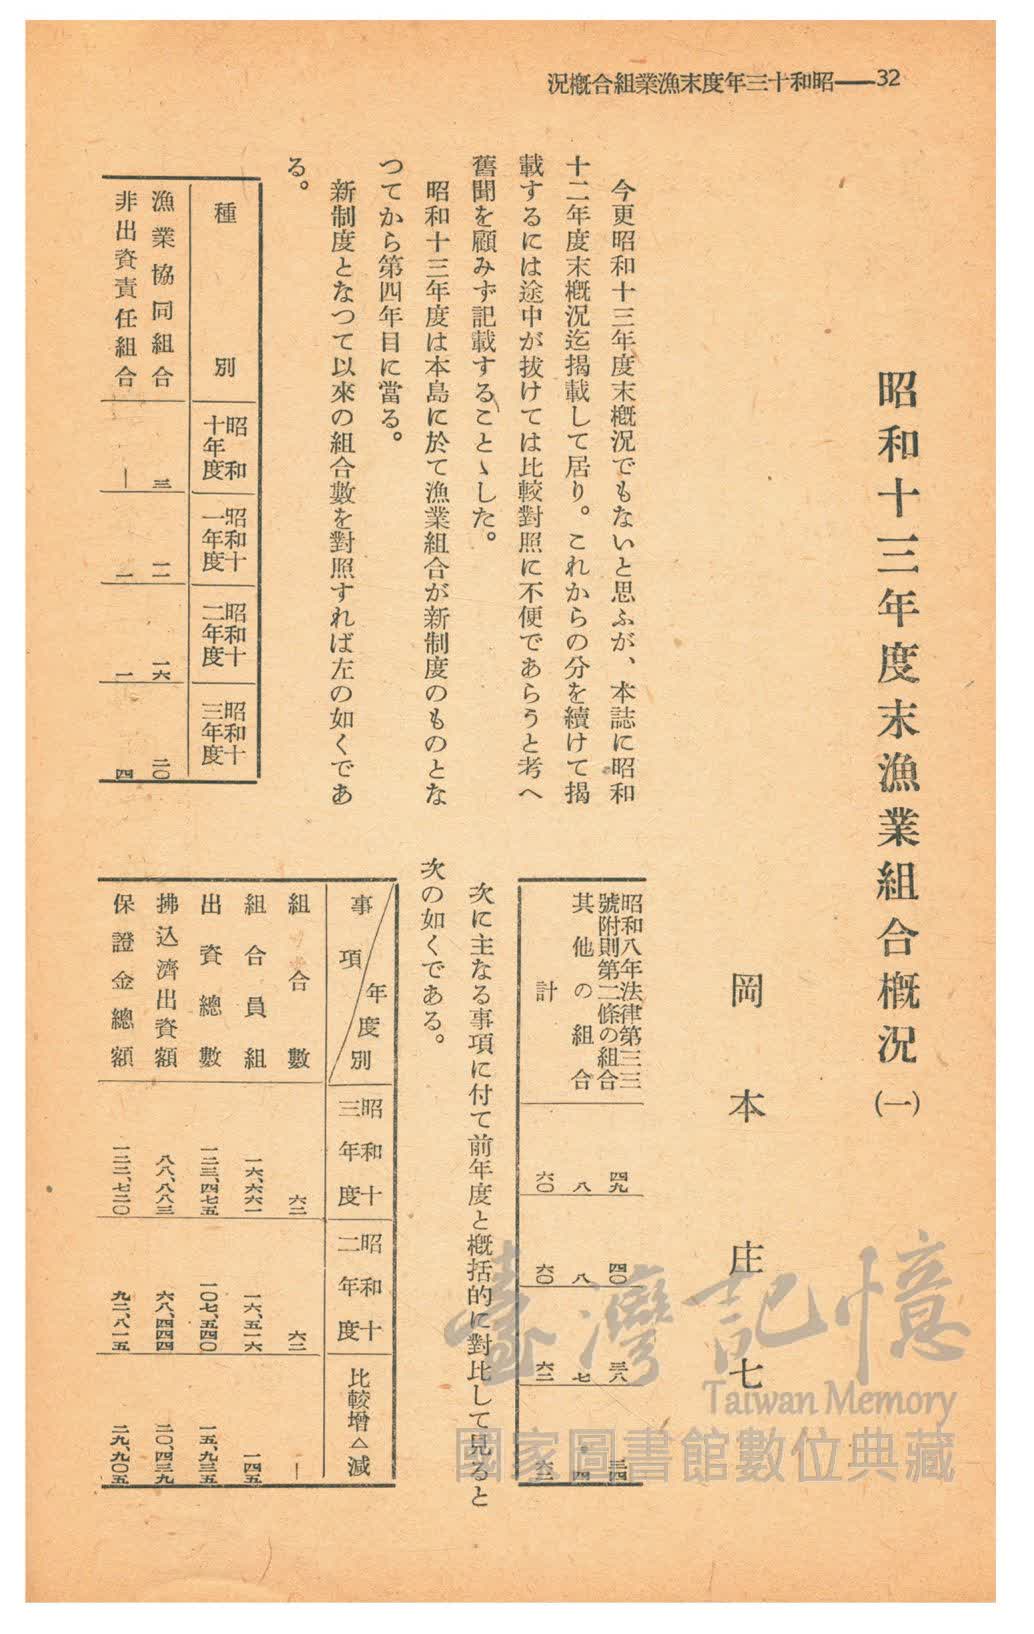 32——昭和十三年度末漁業組合概況
昭和十三年度末漁業組合概況(一)
岡本庄七
今更昭和十三年度末概況でもないと思ふが、本誌に昭和
十二年度末概況迄揭載して居り。これからの分を續けて揭
載するには途中が拔けては比較對照に不便であらうと考へ
舊聞を顧みず記載することゝした。
昭和十三年度は本島に於て漁業組合が新制度のものとな
つてから第四年目に當る。
新制度となつて以來の組合數を對照すれば左の如くであ
る。
種別 昭和十年度 昭和十一年度 昭和十二年度 昭和十三年度
漁業協同組合 三 一一 一六 二〇
非出資責任組合 — 一 一 四
昭和八年法律第三三號附則第二條の組合 四九 四〇 三八 三四
其他の組合 八 八 七 四
計 六〇 六〇 六二 六二
次に主なる事項に付て前年度と概括的に對比して見ると
次の如くである。
事項 年度別 昭和十三年度 昭和十二年度 比較增△減
組合數 六二 六二 —
組合員組 一六、六六一 一六、五一六 一四五
出資總數 一二三、四七五 一〇七、五四〇 一五、九三五
拂込濟出資額 八八、八八三 六八、四四四 二〇、四三九
保證金總額 一二二、七二〇 九二、八一五 二九、九〇五
臺灣記憶
Taiwan Memory
國家圖書館數位典藏